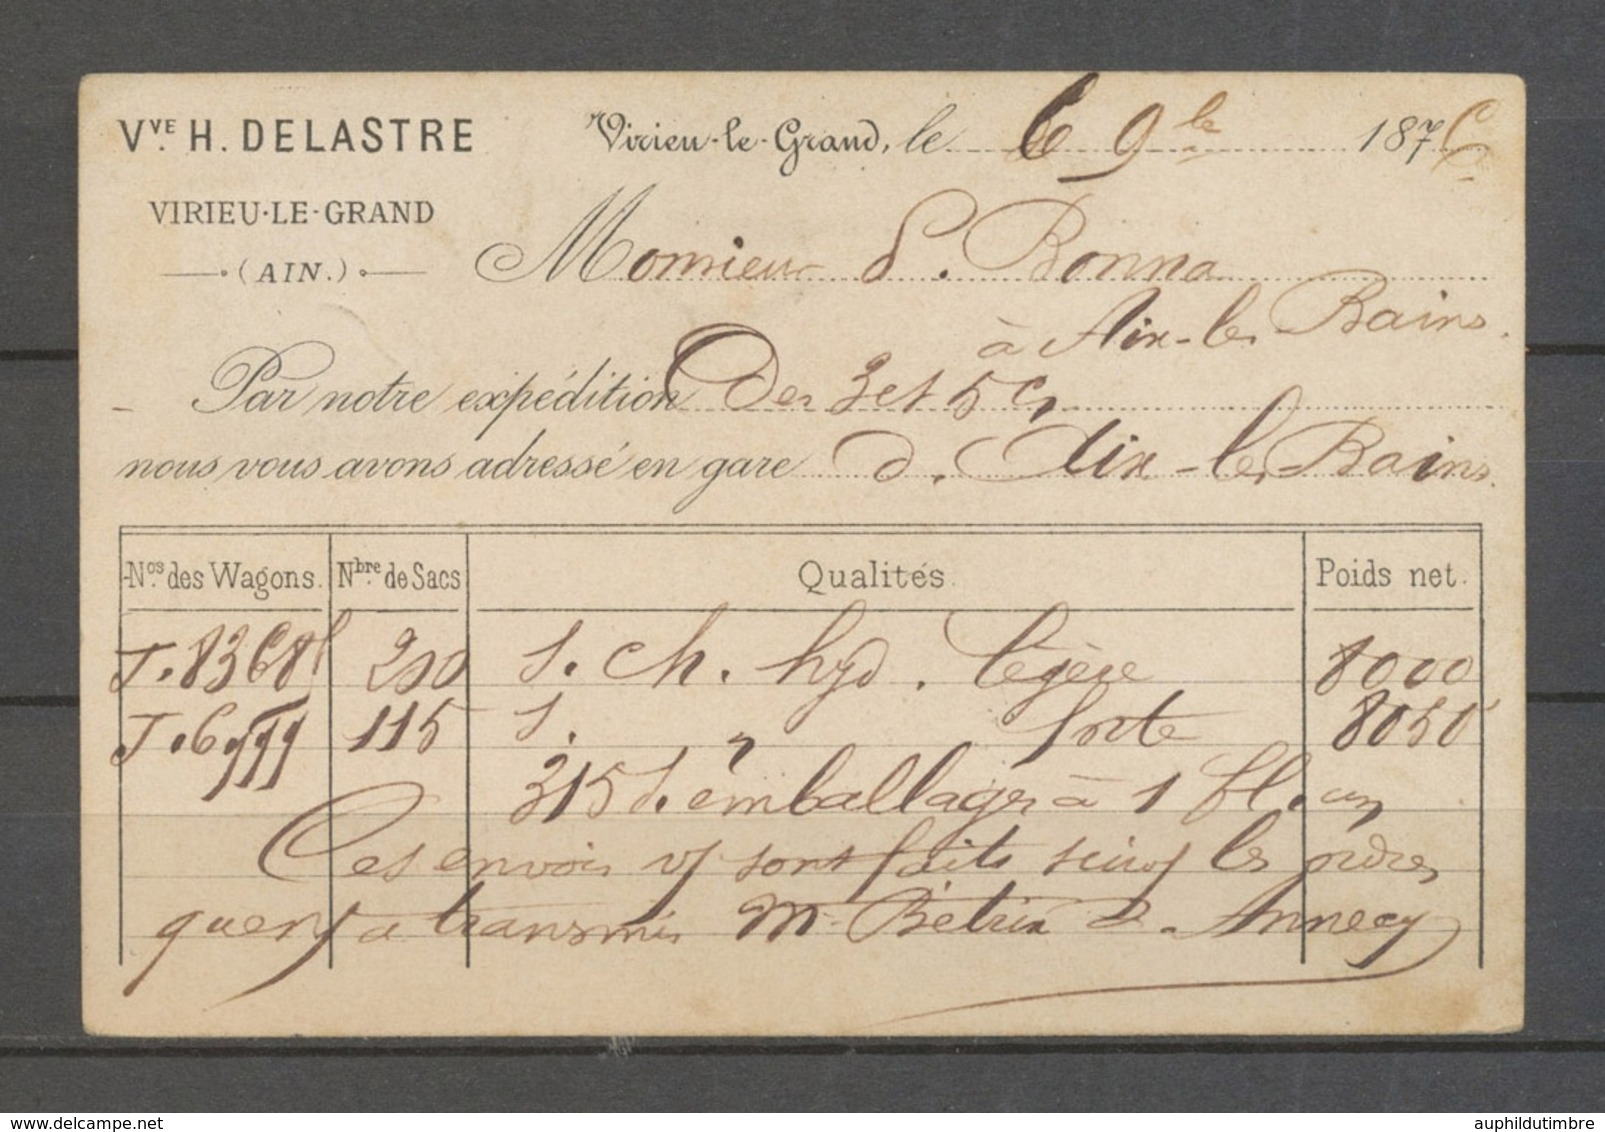 Vve H. DELASTRE
VIRIEU-LE-GRAND
(AIN.)
Virieu-le-Grand, le 6 9bre 1876
Monsieur P. Bonna
à Aix-les-Bains.
Par notre expédition Des 3 et 5 ct
nous vous avons adressé en gare d'Aix-les-Bains.
Nos des Wagons. Nbre de Sacs Qualités. Poids net.
J. 200 S. ch. hyd. légère 8000
J. 115 S. " forte 8050
315 S. emballages à 1 f l'un
Ces envois vs sont faits suivt les ordres
que ns a transmis Mr Bétrix d'Annecy
auphildutimbre
delcampe.net